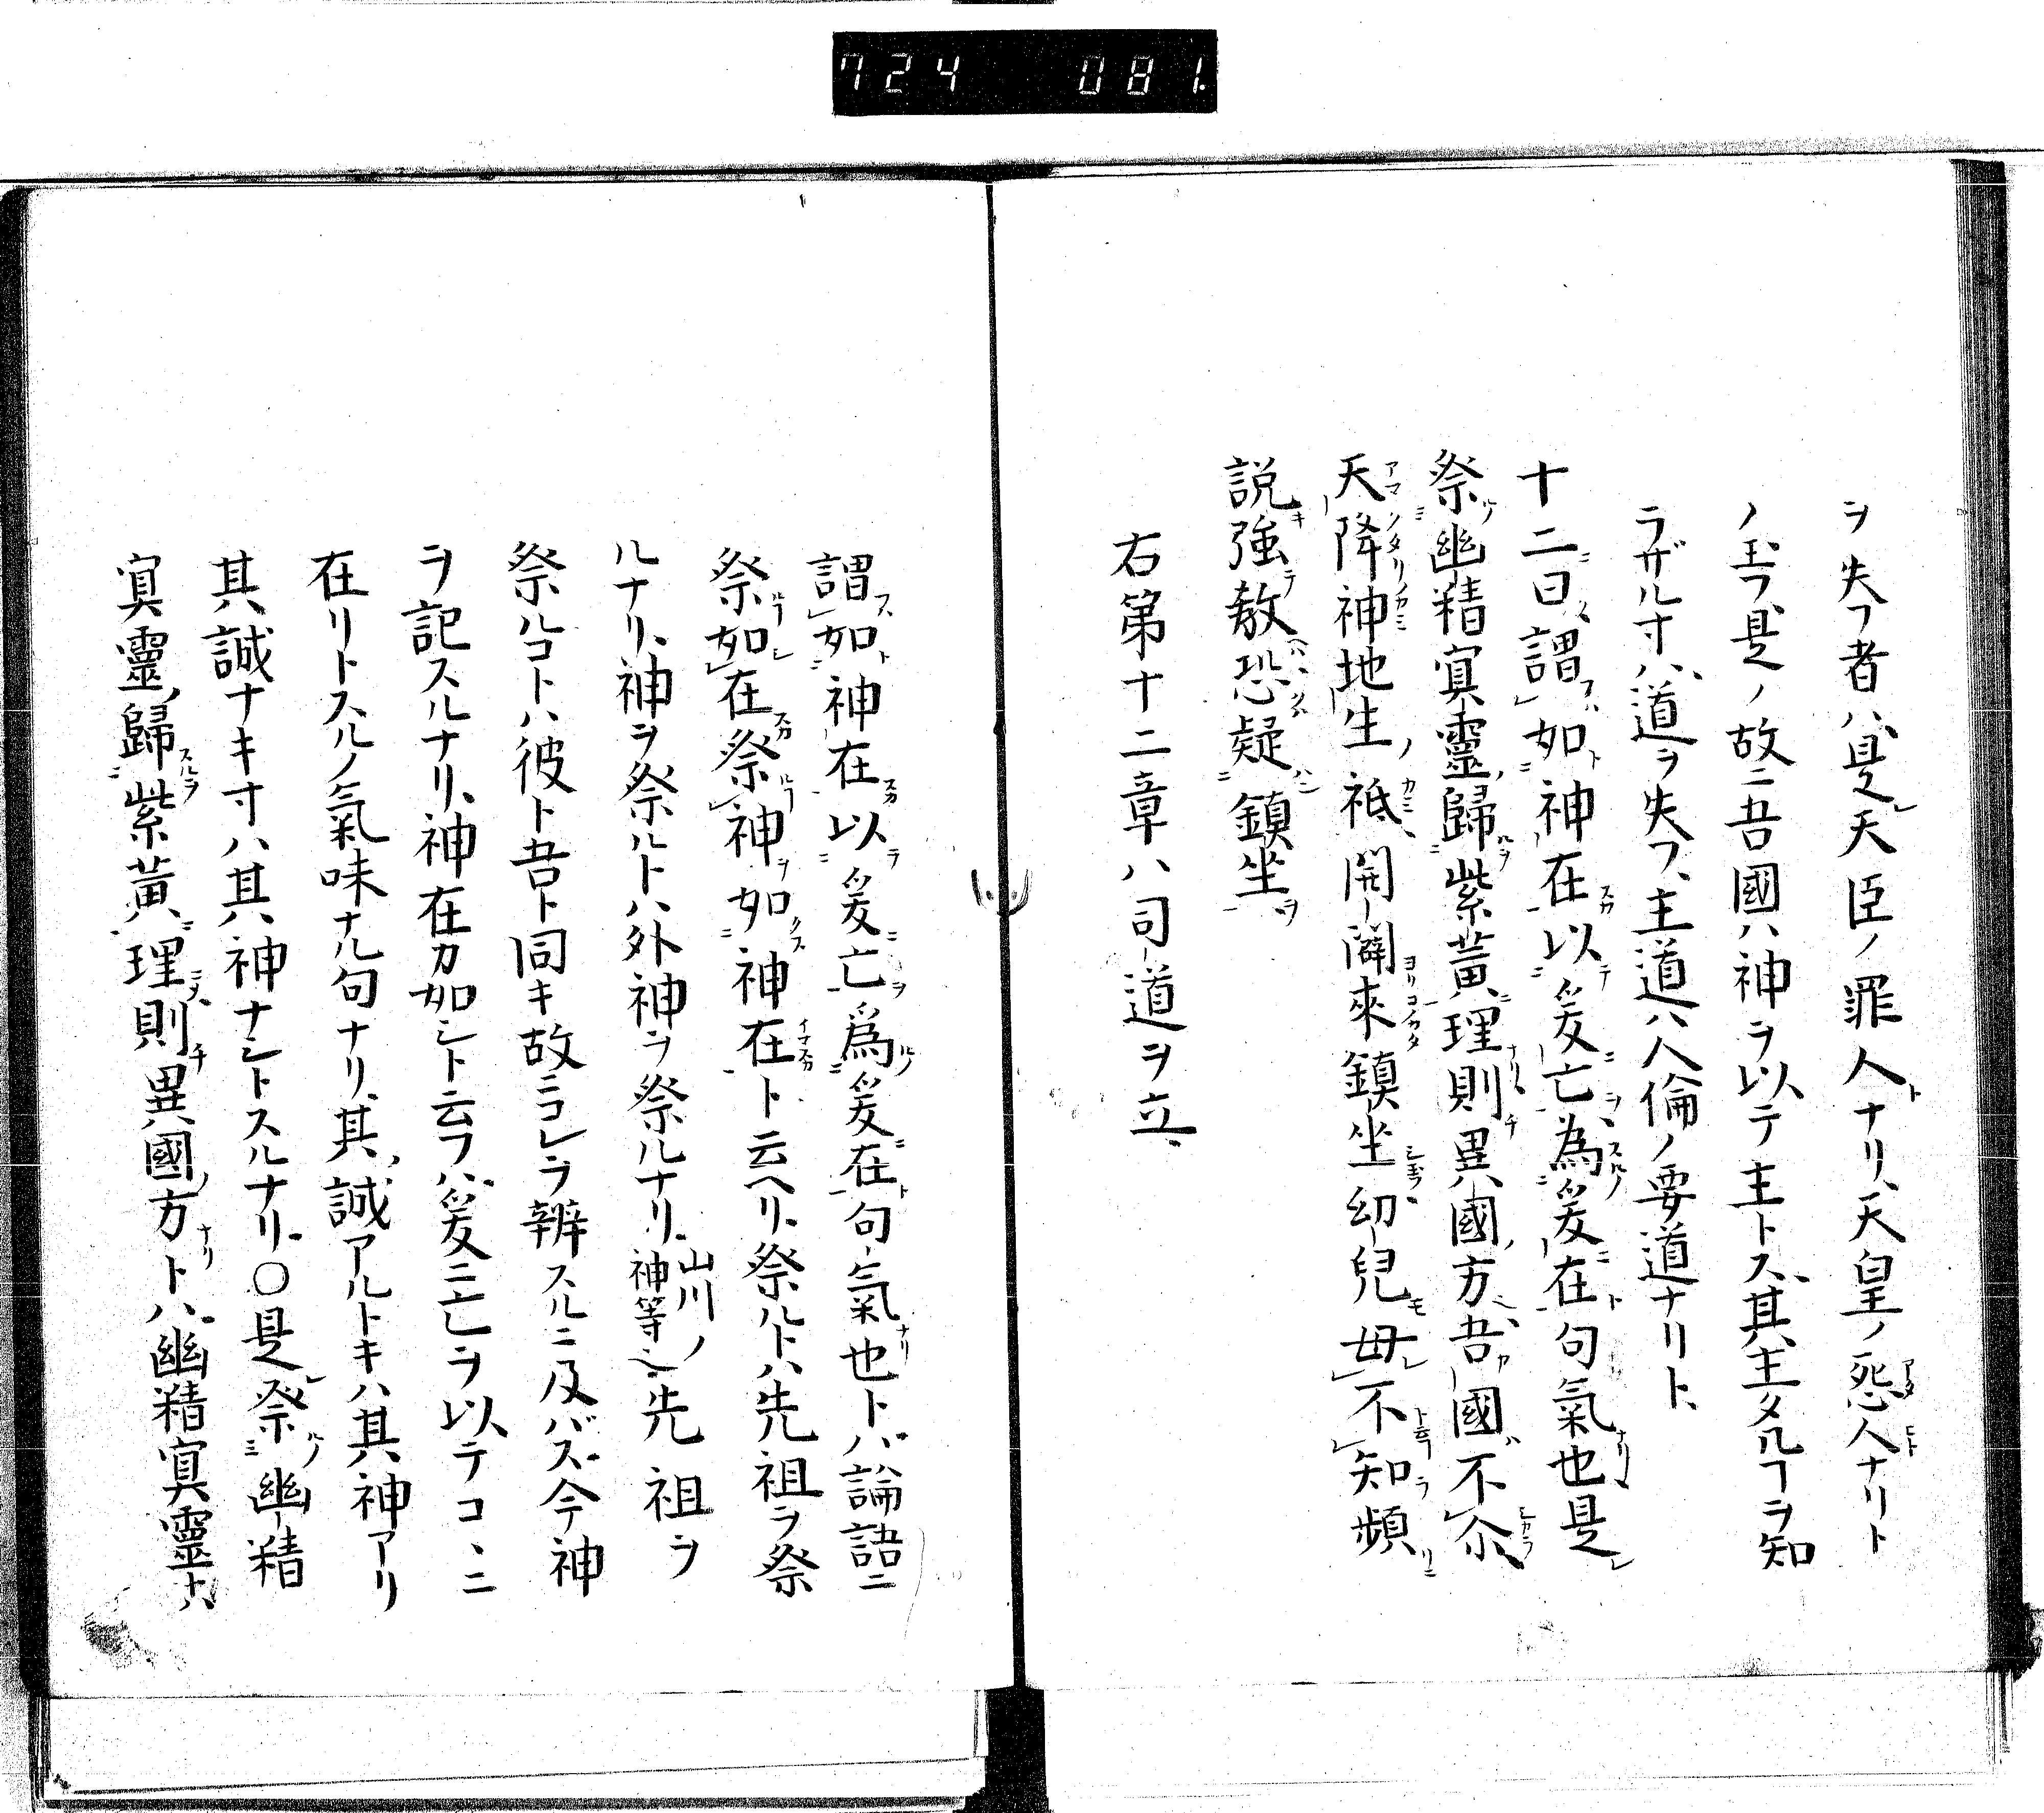 724 081.
ヲ失フ者ハ、是レ天臣ノ罪人トナリ、天皇ノ怨人ナリト
ノ玉フ、是ノ故ニ吾國ハ神ヲ以テ主トス、其主タルヿヲ知
ラザル寸ハ、道ヲ失フ、主道ハ人倫ノ要道ナリト、
十二曰、謂如神在以爰亡為爰在句氣也是
祭幽精寘靈歸紫黃理則異國方吾國不尒
天降神地生祗開闢來鎮坐幼兒毋不知頻
説強敎恐疑鎮坐
右第十二章ハ司道ヲ立、
謂如神在以爰亡爲爰在句氣也トハ、論語ニ
祭如在祭神如神在ト云ヘリ、祭ルトハ先祖ヲ祭
ルナリ、神ヲ祭ルトハ、外神ヲ祭ルナリ、山川ノ神等 先祖ヲ
祭ルコトハ彼ト吾ト同キ故ニコレヲ辨スルニ及バズ、今神
ヲ記スルナリ、神在カ如シト云フハ、爰ニ亡ヲ以テコヽニ
在リトスルノ氣味ナル句ナリ、其誠アルトキハ其神アリ
其誠ナキ寸ハ其神ナシトスルナリ、○是祭幽精
寘靈歸紫黃理則異國方ナリトハ、幽精寘靈トハ